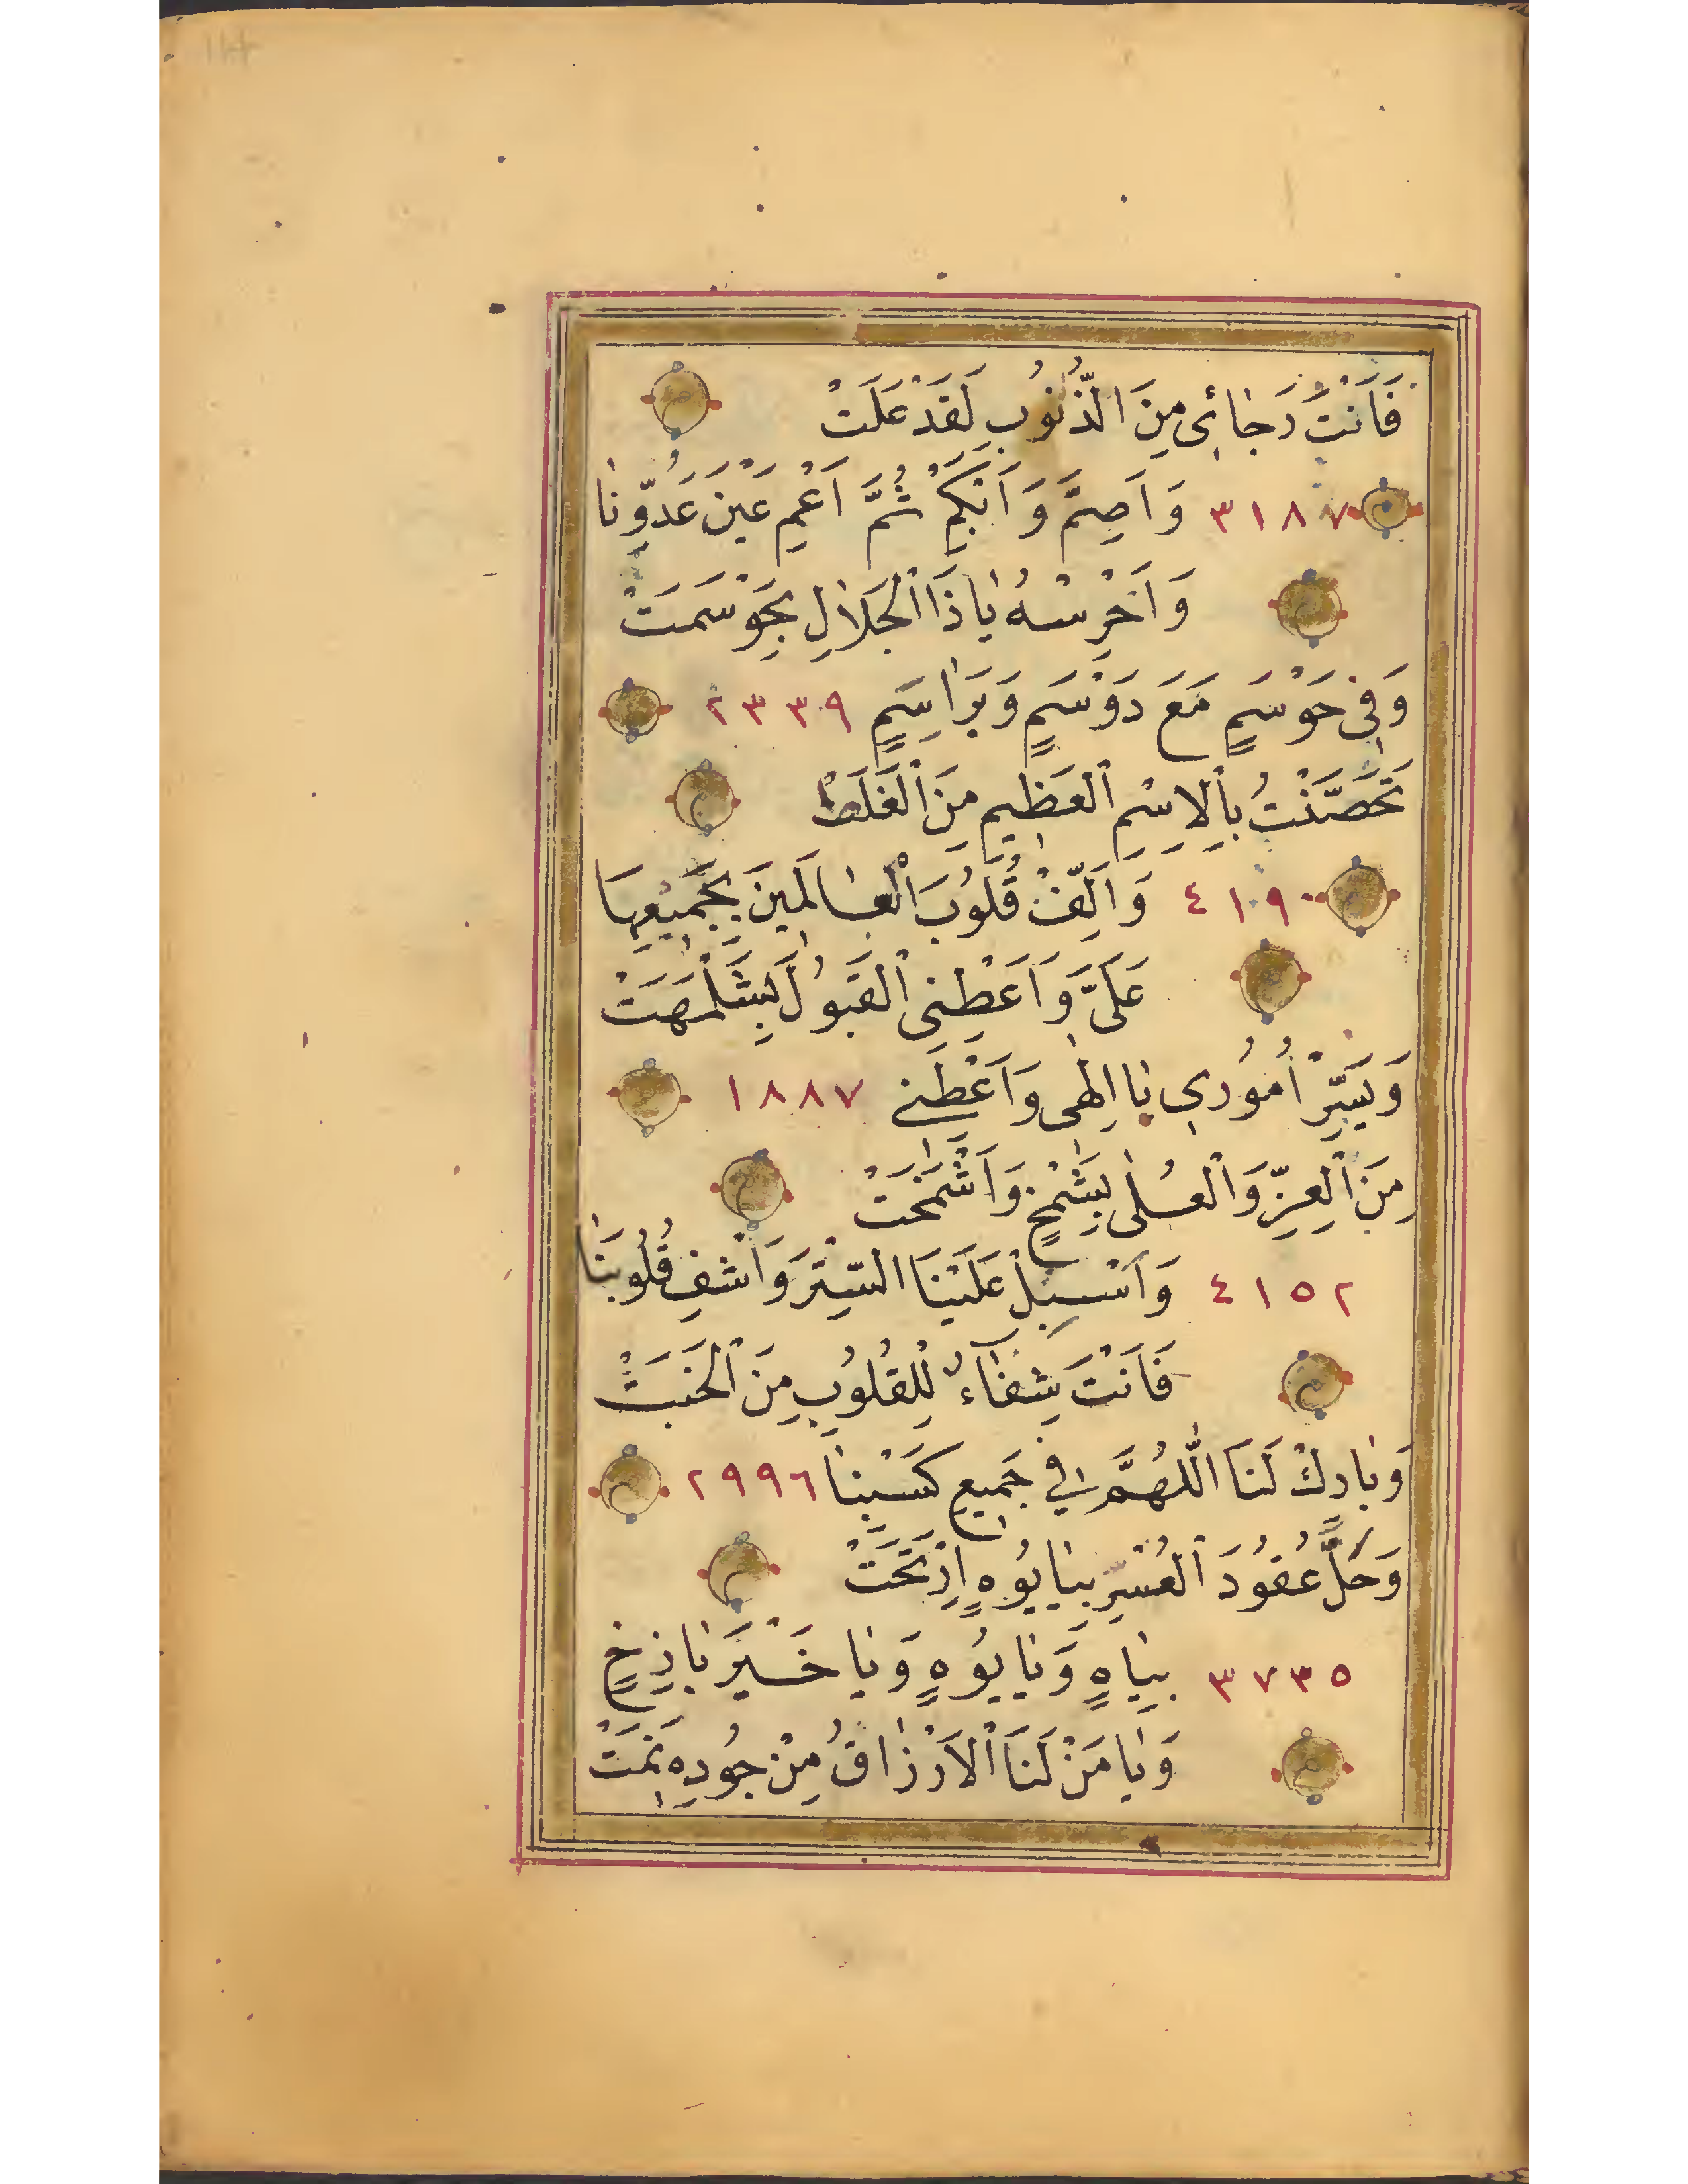 فَاَنْتَ رَجَائِي مِنَ الذُّنُوبِ لَقَدْ عَلَتْ
٣١٨٧ وَاَصِمَّ وَاَبْكِمْ ثُمَّ اَعْمِ عَيْنَ عَدُوِّنَا
وَاَخْرِسْهُ يَا ذَا الْجَلَالِ بِحَوْسَمَتْ
وَفِي حَوْسَمٍ مَعَ دَوْسَمٍ وَبَرَاسِمٍ ٢٣٣٩
تَحَصَّنْتُ بِالْاِسْمِ الْعَظِيمِ مِنَ الْغَلَطْ
٤١٩٠ وَاَلِّفْ قُلُوبَ الْعَالَمِينَ بِجَمِيعِهَا
عَلَيَّ وَاَعْطِنِي الْقَبُولَ بِشَلْمَهَتْ
وَيَسِّرْ اُمُورِي يَا اِلٰهِي وَاَعْطِنِي ١٨٨٧
مِنَ الْعِزِّ وَالْعُلٰى بِشَمْخٍ وَاَشْمَخَتْ
٤١٥٢ وَاَسْبِلْ عَلَيْنَا السِّتْرَ وَاشْفِ قُلُوبَنَا
فَاَنْتَ شِفَآءٌ لِلْقُلُوبِ مِنَ الْخَبَثْ
وَبَارِكْ لَنَا اللّٰهُمَّ فِي جَمِيعِ كَسْبِنَا ٢٩٩٦
وَحُلَّ عُقُودَ الْعُسْرِ بِيَايُوهٍ اِرْتَحَتْ
٣٧٣٥ بِيَاهٍ وَيَا يُوهٍ وَيَا خَيْرَ بَاذِخٍ
وَيَا مَنْ لَنَا الْاَرْزَاقُ مِنْ جُودِهِ نَمَتْ